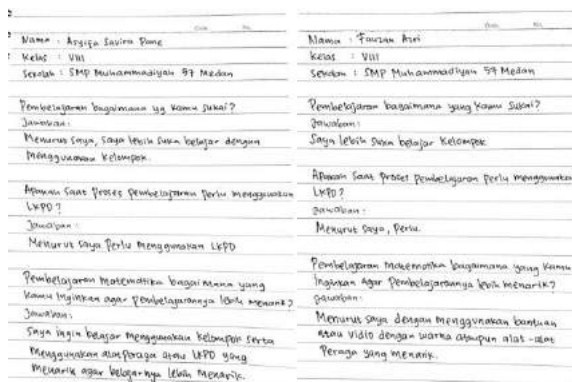 Nama : Asyifa Savira Pane
Kelas : VIII
Sekolah : SMP Muhammadiyah 57 Medan
Pembelajaran bagaimana yg kamu sukai?
Jawaban :
Menurut saya, saya lebih suka belajar dengan
menggunakan kelompok.
Apakah saat proses pembelajaran perlu menggunakan
LKPD ?
Jawaban :
Menurut saya perlu menggunakan LKPD
Pembelajaran matematika bagaimana yang
kamu inginkan agar pembelajarannya lebih menarik?
Jawaban :
Saya ingin belajar menggunakan kelompok serta
menggunakan alat peraga atau LKPD yang
menarik agar belajarnya lebih menarik.
Nama : Fauzan Azri
Kelas : VIII
Sekolah : SMP Muhammadiyah 57 Medan
Pembelajaran bagaimana yang kamu sukai?
Jawaban :
Saya lebih suka belajar kelompok
Apakah saat proses pembelajaran perlu menggunakan
LKPD ?
Jawaban :
Menurut saya, perlu.
Pembelajaran matematika bagaimana yang kamu
inginkan agar pembelajarannya lebih menarik?
Jawaban :
Menurut saya dengan menggunakan bantuan
atau vidio dengan warna ataupun alat-alat
peraga yang menarik.